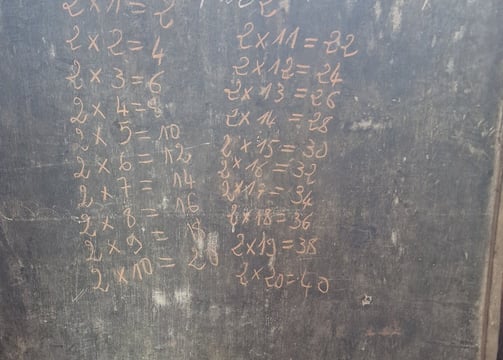 2 × 1 = 2
2 × 2 = 4
2 × 3 = 6
2 × 4 = 8
2 × 5 = 10
2 × 6 = 12
2 × 7 = 14
2 × 8 = 16
2 × 9 =
2 × 10 = 20
2 × 11 = 22
2 × 12 = 24
2 × 13 = 26
2 × 14 = 28
2 × 15 = 30
2 × 16 = 32
2 × 17 = 34
2 × 18 = 36
2 × 19 = 38
2 × 20 = 40